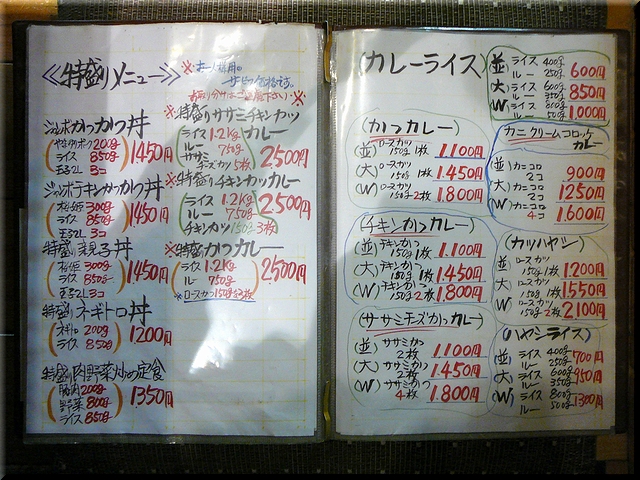 ≪特盛りメニュー≫
※お一人様用の
サービス価格です。
お取り分けはご遠慮下さい※
ジャンボかつかつ丼
ライス 850g
玉子2L 3コ
1450円
ジャンボチキンかつかつ丼
300g
ライス 850g
玉子2L 3コ
1450円
特盛り親子丼
300g
ライス 850g
玉子2L 3コ
1450円
特盛りネギトロ丼
ネギトロ 200g
ライス 850g
1200円
特盛り肉野菜炒め定食
豚肉 200g
野菜 800g
ライス 850g
1350円
※特盛りササミチキンカツ
カレー
ライス 1.2Kg
ルー 750g
ササミ
チーズカツ 5枚
2500円
※特盛りチキンカツカレー
ライス 1.2Kg
ルー 750g
チキンカツ 150g 3枚
2500円
※特盛りかつカレー
ライス 1.2Kg
ルー 750g
※ロースかつ150g 3枚
2500円
(カレーライス)
(並) ライス 400g
ルー 250g 600円
(大) ライス 600g
ルー 350g 850円
(W) ライス 800g
ルー 500g 1,000円
(かつカレー)
(並) ロースカツ
150g 1枚 1,100円
(大) ロースカツ
150g 1枚 1,450円
(W) ロースカツ
150g 2枚 1,800円
カニクリームコロッケ
カレー
(並) カニコロ
2コ 900円
(大) カニコロ
2コ 1250円
(W) カニコロ
4コ 1,600円
(チキンかつカレー)
(並) チキンかつ
150g 1枚 1,100円
(大) チキンかつ
150g 1枚 1,450円
(W) チキンかつ
150g 2枚 1,800円
(カツハヤシ)
(並) ロースカツ
150g 1枚 1,200円
(大) ロースカツ
150g 1枚 1,550円
(W) ロースカツ
150g 2枚 2,100円
(ササミチーズかつカレー)
(並) ササミかつ
2枚 1,100円
(大) ササミかつ
2枚 1,450円
(W) ササミかつ
4枚 1,800円
(ハヤシライス)
(並) ライス 400g
ルー 250g 700円
(大) ライス 600g
ルー 350g 950円
(W) ライス 800g
ルー 500g 1300円